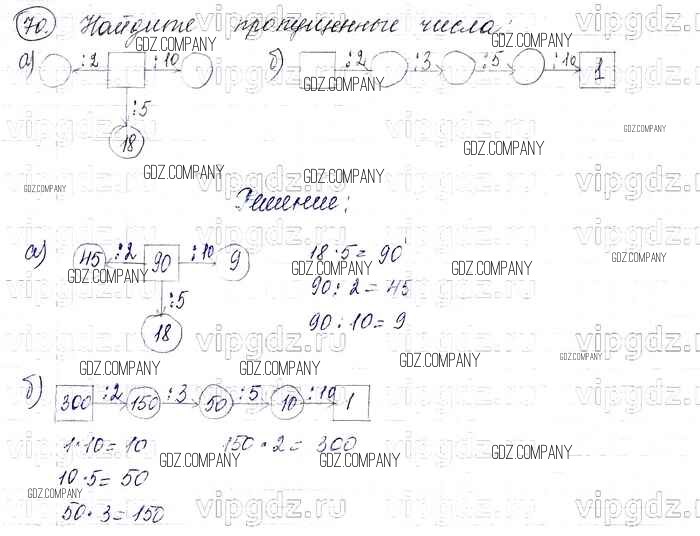 70. Найдите пропущенные числа:
а) :2 :10 б) :2 :3 :5 :10 1
:5
18
Решение:
а) 45 :2 90 :10 9 18·5=90
:5 90:2=45
18 90:10=9
б) 300 :2 150 :3 50 :5 10 :10 1
1·10=10 150·2=300
10·5=50
50·3=150
GDZ.COMPANY
vipgdz.ru